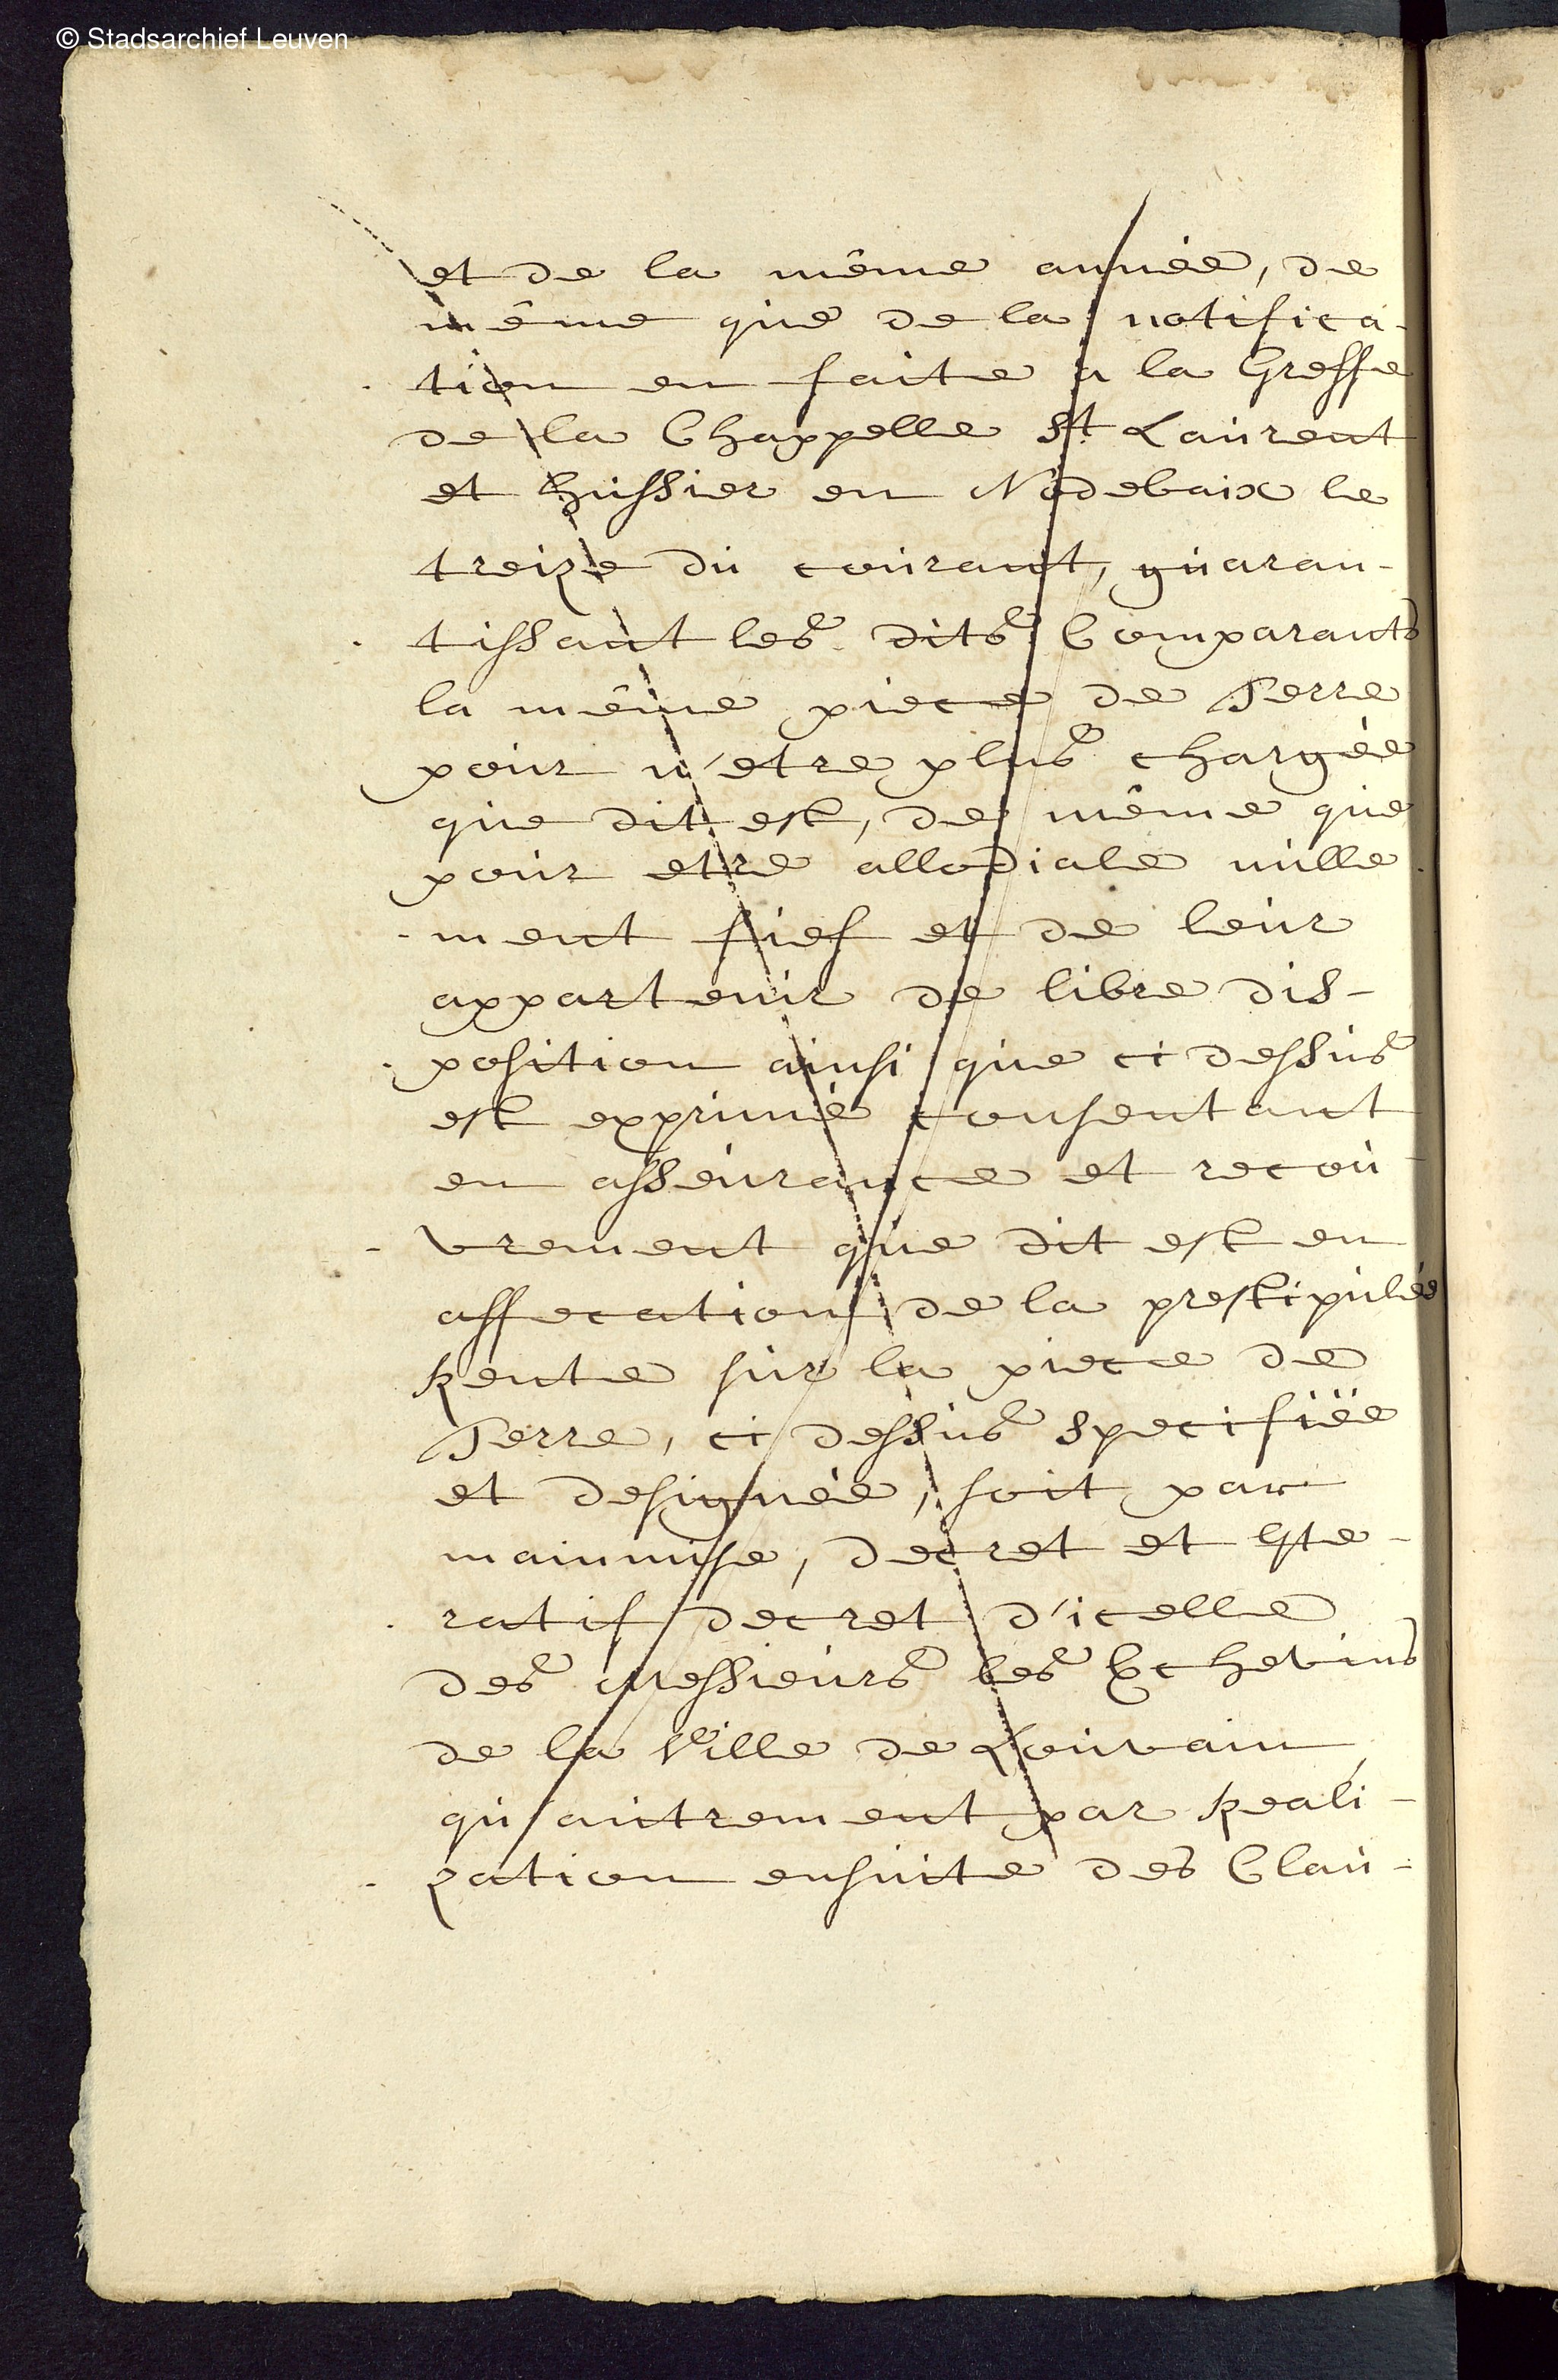 © Stadsarchief Leuven
et de la même année, de
même que de la notifica-
tion en faite a la Greffe
de la Chappelle St. Laurent
et hussier en Nodebaix le
treize du courant, guaran-
tissant les dits Comparants
la même piece de Terre
pour n'etre plus chargée
que dit est, de même que
pour etre allodiale nulle-
ment fief et de leur
appartenir de libre dis-
position ainsi que ci dessus
est exprimé consentant
en asseurance et recou-
vrement que dit est en
affecation de la prestipulée
Rente sur la piece de
Terre, ci dessus specifiée
et designée, soit par
mainmise, decret et Ite-
ratif decret d'icelle
des Messieurs les Echevins
de la Ville de Louvain,
qu'autrement par Reali-
zation ensuite des Clau-